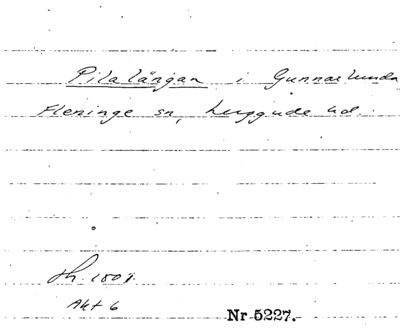 Pilalängan i Gunnarlunda
Fleninge sn, Luggude hd.
Sh. 1809.
Akt 6
Nr 5227.-